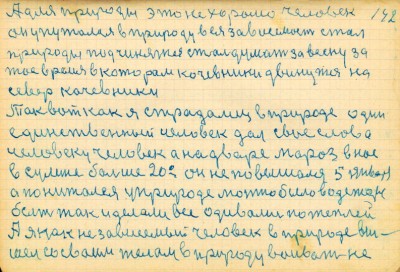 А для природы это не хорошо человек 142
он путался в природу вся зависимост стал
природы подчинятся стал думат за весну за
тое время в котором кочевники двинутся на
север кочевники
Так вот как я страдалиц в природе один
единственный человек дал свое слово
человеку человек а на дваре мароз в ное
в сумме болше 20г он не повышал 5 января
а понимался у природе можно было одежда
быт так и делали все одивали потеплей
А я как не зависимый человек в природе вы-
шел со своим телом в природу воиват не